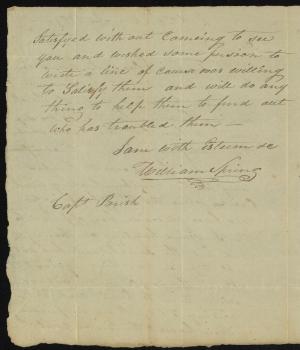 Satisfyed without Comeing to see
you and wished some person to
write a line of cause was willing
to Satisfy them and will do any
thing to help them to find out
who has troubled them —
I am with Esteem &c
William Spring
Capt Parish